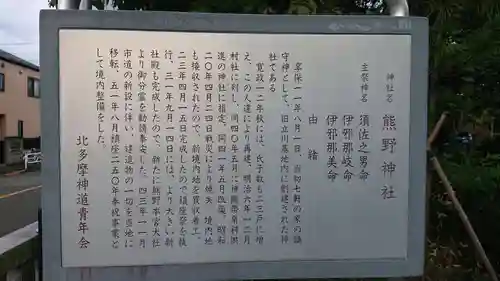 神社名 熊野神社
主祭神名 須佐之男命
伊邪那岐命
伊邪那美命
由緒
享保一一年八月一日、当初七軒の家の鎮
守神として、旧立川基地内に創建された神
社である
寛政一二年秋には、氏子数も二三戸に増
え、この人達により再建、明治六年一二月
村社に列し、同四〇年五月に神饌幣帛料供
進の神社に指定、同四一年五月改築、昭和
二〇年四月四日戦災により焼失、境内地
も接収されたので、新境内地を買収着工、
二三年四月一五日完成したので鎮座祭を執
行、三一年九月一四日には、より大きい新
社殿も完成したので、新たに熊野本宮大社
より御分霊を勧請奉安した。四三年一一月
市道の新設に伴い、建造物の一切を当地に
移転、五一年八月鎮座二五〇年奉祝事業と
して境内整備をした。
北多摩神道青年会